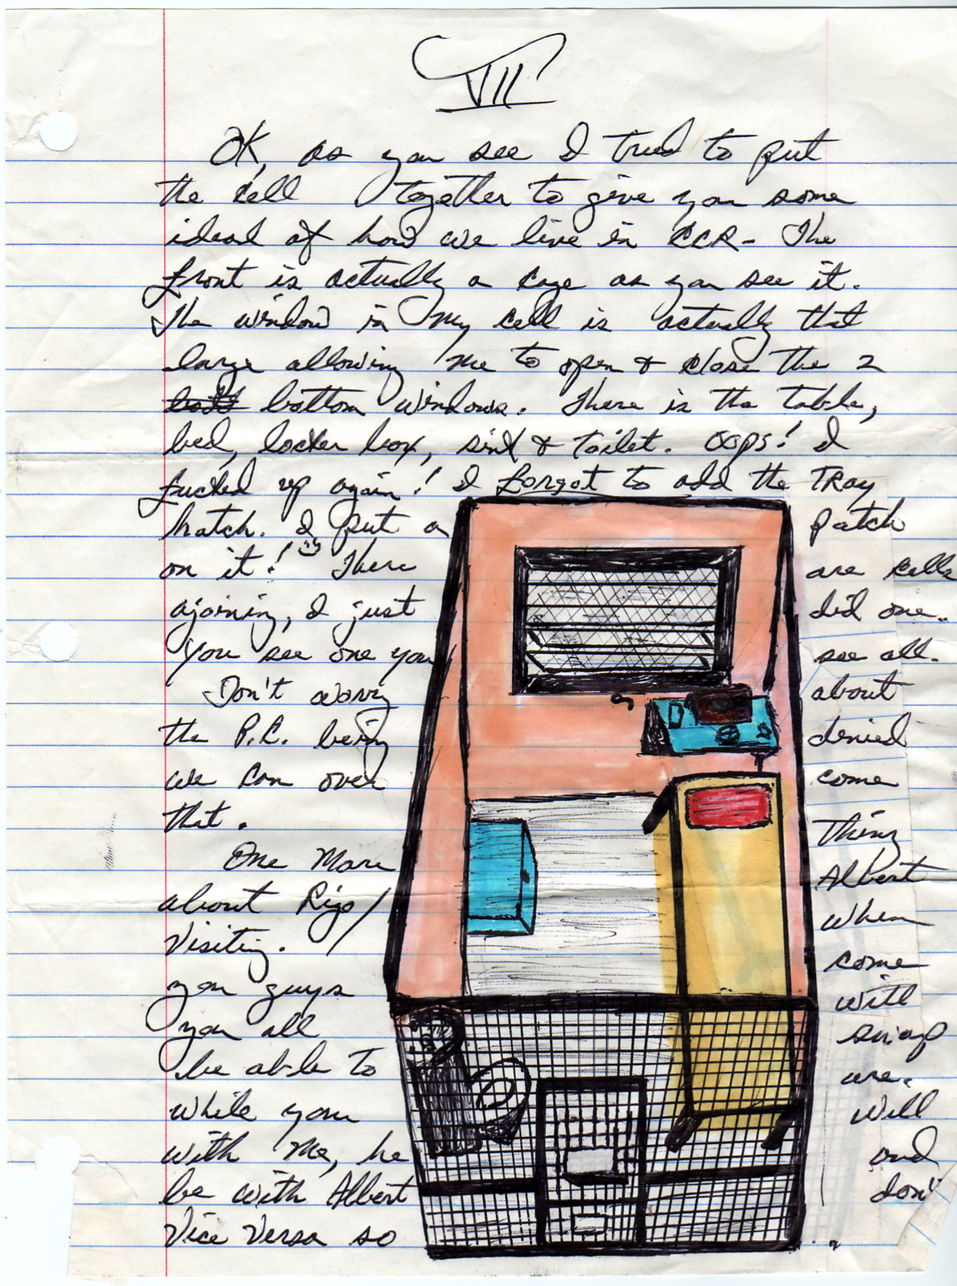 VII
OK, as you see I tried to put
the cell together to give you some
ideal of how we live in CCR- The
front is actually a cage as you see it.
The window in my cell is actually that
large allowing me to open & close the 2
bottom windows. There is the table,
bed, locker box, sink & toilet. Oops! I
fucked up again! I forgot to add the Tray
hatch. I put a patch
on it! There are cells
ajoining, I just did one..
You see one you see all.
Don't worry about
the P.C. being denied
we can over come
that.
One More Thing
about Rigo/ Albert
Visiting. When
you guys come
you all will
be able to swap
while you are.
with me, he will
be with Albert and
Vice Versa so don't